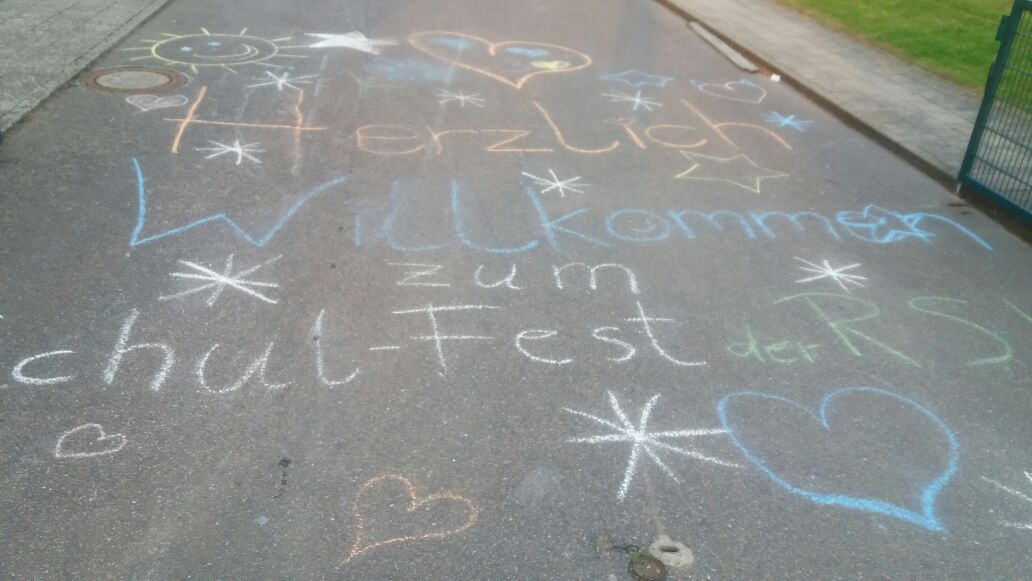 Herzlich
Willkommen
zum
chul-Fest der RS